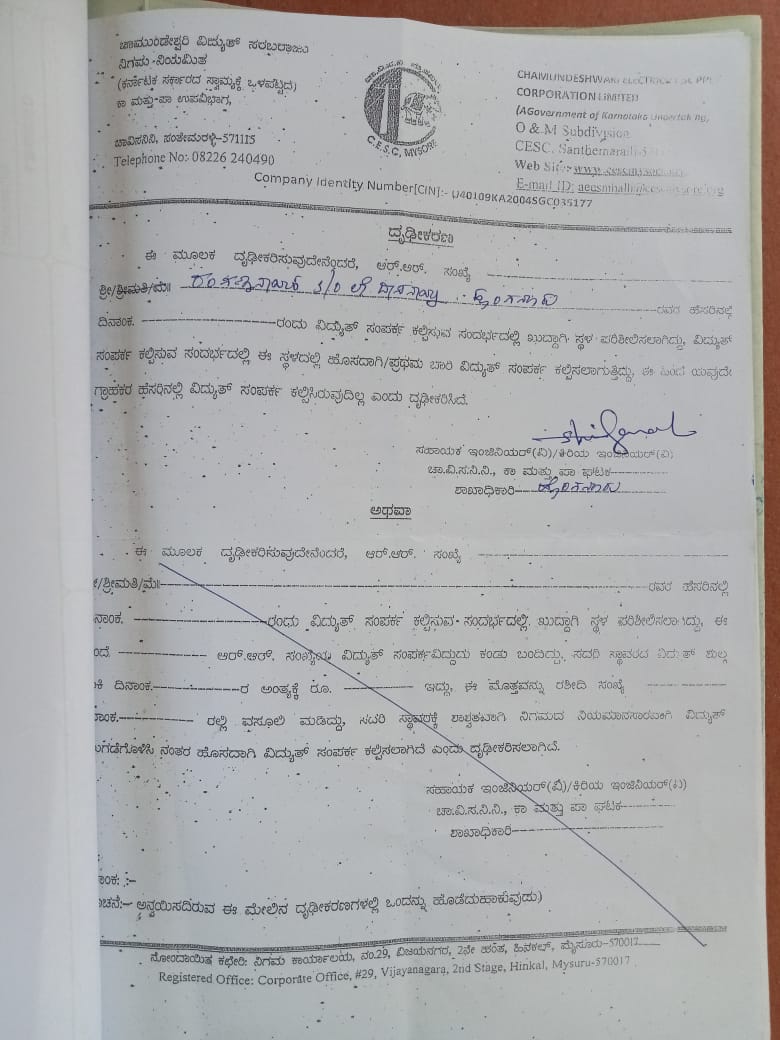 ಚಾಮುಂಡೇಶ್ವರಿ ವಿದ್ಯುತ್ ಸರಬರಾಜು
ನಿಗಮ ನಿಯಮಿತ
(ಕರ್ನಾಟಕ ಸರ್ಕಾರದ ಸ್ವಾಮ್ಯಕ್ಕೆ ಒಳಪಟ್ಟದ)
ಕಾ ಮತ್ತು ಪಾ ಉಪವಿಭಾಗ,
ಚಾವಿಸನಿನಿ, ಸಂತೇಮರಳ್ಳಿ-571115
Telephone No: 08226 240490
C.E.S.C, MYSORE
CHAMUNDESHWARI
CORPORATION LIMITED
(AGovernment of Karnataka
O & M Subdivision
CESC, Santhemaralli
Web Site:-
E-mail ID:
Company Identity Number[CIN]:- U40109KA2004SGC035177
ದೃಢೀಕರಣ
ಈ ಮೂಲಕ ದೃಢೀಕರಿಸುವುದೇನೆಂದರೆ, ಆರ್.ಆರ್. ಸಂಖ್ಯೆ
ಶ್ರೀ/ಶ್ರೀಮತಿ/ಮೆ॥ ರವರ ಹೆಸರಿನಲ್ಲಿ
ದಿನಾಂಕ. ರಂದು ವಿದ್ಯುತ್ ಸಂಪರ್ಕ ಕಲ್ಪಿಸುವ ಸಂದರ್ಭದಲ್ಲಿ ಖುದ್ದಾಗಿ ಸ್ಥಳ ಪರಿಶೀಲಿಸಲಾಗಿದ್ದು, ವಿದ್ಯುತ್
ಸಂಪರ್ಕ ಕಲ್ಪಿಸುವ ಸಂದರ್ಭದಲ್ಲಿ ಈ ಸ್ಥಳದಲ್ಲಿ ಹೊಸದಾಗಿ/ಪ್ರಥಮ ಬಾರಿ ವಿದ್ಯುತ್ ಸಂಪರ್ಕ ಕಲ್ಪಿಸಲಾಗುತ್ತಿದ್ದು, ಈ ಹಿಂದೆ ಯಾವುದೇ
ಗ್ರಾಹಕರ ಹೆಸರಿನಲ್ಲಿ ವಿದ್ಯುತ್ ಸಂಪರ್ಕ ಕಲ್ಪಿಸಿರುವುದಿಲ್ಲ ಎಂದು ದೃಢೀಕರಿಸಿದೆ.
ಸಹಾಯಕ ಇಂಜಿನಿಯರ್(ವಿ)/ಕಿರಿಯ ಇಂಜಿನಿಯರ್(ವಿ)
ಚಾ.ವಿ.ಸ.ನಿ.ನಿ., ಕಾ ಮತ್ತು ಪಾ ಘಟಕ
ಶಾಖಾಧಿಕಾರಿ
ಅಥವಾ
ಈ ಮೂಲಕ ದೃಢೀಕರಿಸುವುದೇನೆಂದರೆ, ಆರ್.ಆರ್. ಸಂಖ್ಯೆ
/ಶ್ರೀಮತಿ/ಮೆ॥ ರವರ ಹೆಸರಿನಲ್ಲಿ
ನಾಂಕ. ರಂದು ವಿದ್ಯುತ್ ಸಂಪರ್ಕ ಕಲ್ಪಿಸುವ ಸಂದರ್ಭದಲ್ಲಿ, ಖುದ್ದಾಗಿ ಸ್ಥಳ ಪರಿಶೀಲಿಸಲಾಗಿದ್ದು, ಈ
ಂದೆ ಆರ್.ಆರ್. ಸಂಖ್ಯೆಯ ವಿದ್ಯುತ್ ಸಂಪರ್ಕವಿದ್ದುದು ಕಂಡು ಬಂದಿದ್ದು, ಸದರಿ ಸ್ಥಾವರದ ವಿದ್ಯುತ್ ಶುಲ್ಕ
ಕಿ ದಿನಾಂಕ. ರ ಅಂತ್ಯಕ್ಕೆ ರೂ. ಇದ್ದು, ಈ ಮೊತ್ತವನ್ನು ರಶೀದಿ ಸಂಖ್ಯೆ
ನಾಂಕ. ರಲ್ಲಿ ವಸೂಲಿ ಮಾಡಿದ್ದು, ಸದರಿ ಸ್ಥಾವರಕ್ಕೆ ಶಾಶ್ವತವಾಗಿ ನಿಗಮದ ನಿಯಮಾನುಸಾರವಾಗಿ ವಿದ್ಯುತ್
ುಗಡೆಗೊಳಿಸಿ ನಂತರ ಹೊಸದಾಗಿ ವಿದ್ಯುತ್ ಸಂಪರ್ಕ ಕಲ್ಪಿಸಲಾಗಿದೆ ಎಂದು ದೃಢೀಕರಿಸಲಾಗಿದೆ.
ಸಹಾಯಕ ಇಂಜಿನಿಯರ್(ವಿ)/ಕಿರಿಯ ಇಂಜಿನಿಯರ್(ವಿ)
ಚಾ.ವಿ.ಸ.ನಿ.ನಿ., ಕಾ ಮತ್ತು ಪಾ ಘಟಕ
ಶಾಖಾಧಿಕಾರಿ
ಾಂಕ: :-
ೂಚನೆ:- ಅನ್ವಯಿಸದಿರುವ ಈ ಮೇಲಿನ ದೃಢೀಕರಣಗಳಲ್ಲಿ ಒಂದನ್ನು ಹೊಡೆದುಹಾಕುವುದು)
ನೋಂದಾಯಿತ ಕಛೇರಿ: ನಿಗಮ ಕಾರ್ಯಾಲಯ, ನಂ.29, ವಿಜಯನಗರ, 2ನೇ ಹಂತ, ಹಿನಕಲ್, ಮೈಸೂರು-570017
Registered Office: Corporate Office, #29, Vijayanagara, 2nd Stage, Hinkal, Mysuru-570017